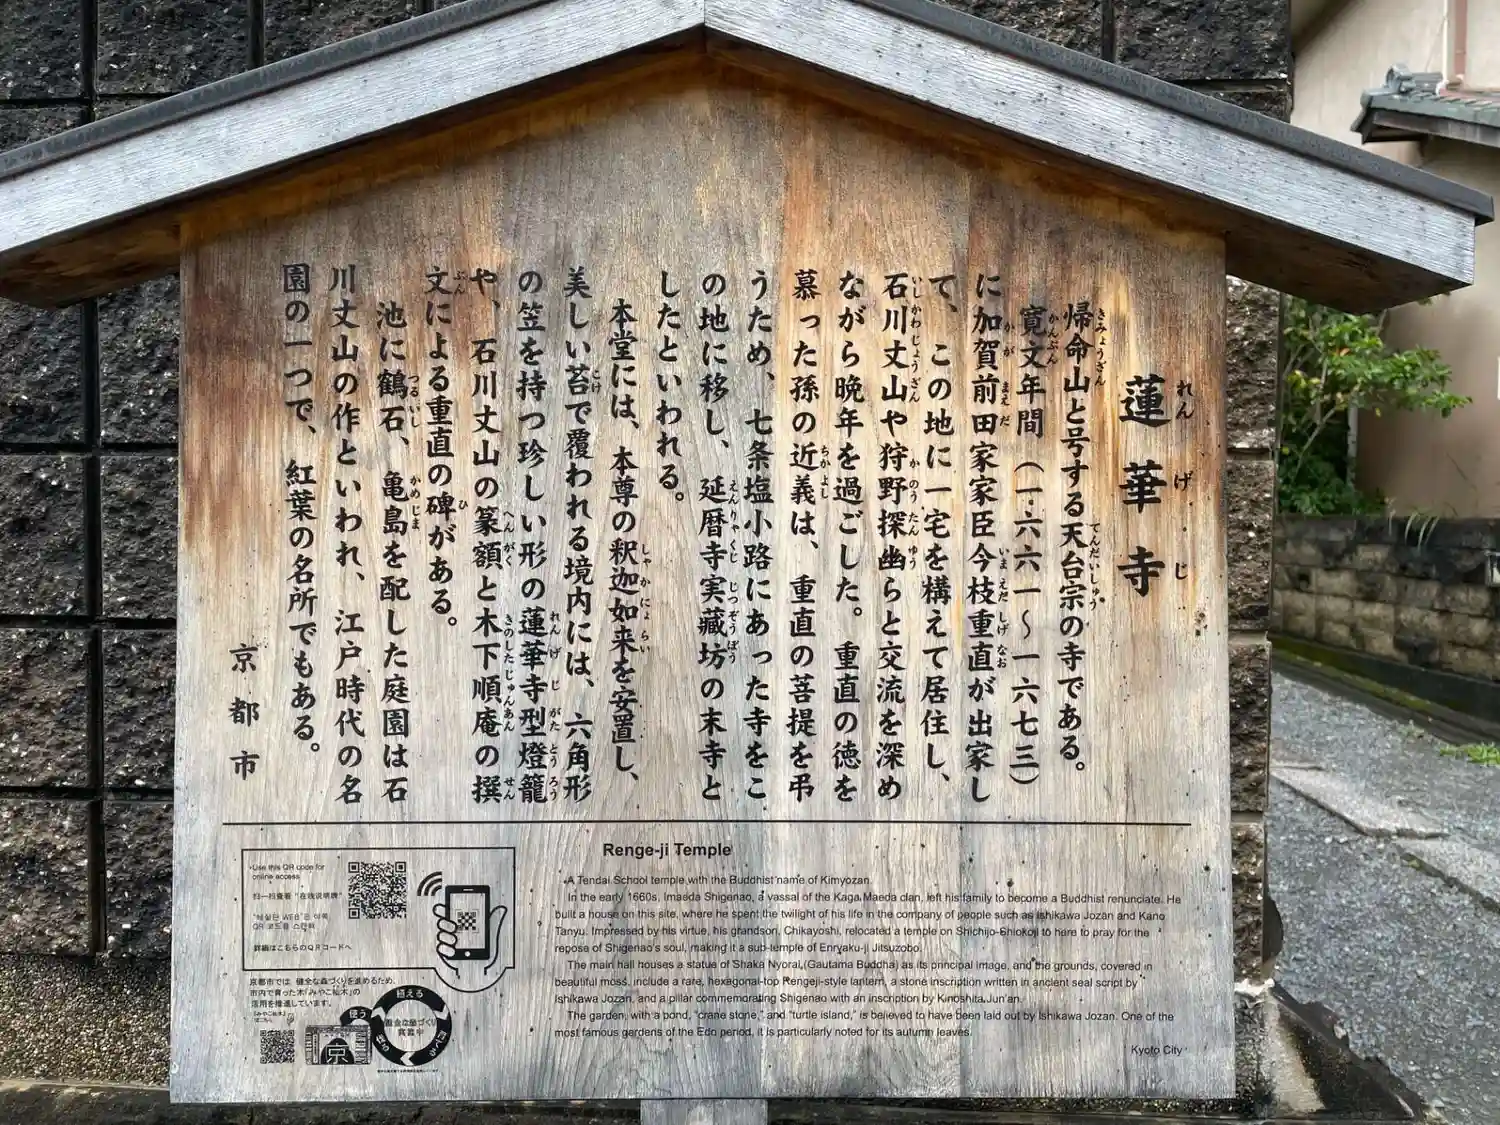 蓮華寺
帰命山と号する天台宗の寺である。
寛文年間（一六六一～一六七三）
に加賀前田家家臣今枝重直が出家し
て、この地に一宅を構えて居住し、
石川丈山や狩野探幽らと交流を深め
ながら晩年を過ごした。重直の徳を
慕った孫の近義は、重直の菩提を弔
うため、七条塩小路にあった寺をこ
の地に移し、延暦寺実蔵坊の末寺と
したといわれる。
本堂には、本尊の釈迦如来を安置し、
美しい苔で覆われる境内には、六角形
の笠を持つ珍しい形の蓮華寺型燈籠
や、石川丈山の篆額と木下順庵の撰
文による重直の碑がある。
池に鶴石、亀島を配した庭園は石
川丈山の作といわれ、江戸時代の名
園の一つで、紅葉の名所でもある。
京都市
Renge-ji Temple
A Tendai School temple with the Buddhist name of Kimyozan.
In the early 1660s, Imaeda Shigenao, a vassal of the Kaga Maeda clan, left his family to become a Buddhist renunciate. He
built a house on this site, where he spent the twilight of his life in the company of people such as Ishikawa Jozan and Kano
Tanyu. Impressed by his virtue, his grandson, Chikayoshi, relocated a temple on Shichijo-Shiokoji to here to pray for the
repose of Shigenao's soul, making it a sub-temple of Enryaku-ji Jitsuzobo.
The main hall houses a statue of Shaka Nyorai (Gautama Buddha) as its principal image, and the grounds, covered in
beautiful moss, include a rare, hexagonal-top Rengeji-style lantern, a stone inscription written in ancient seal script by
Ishikawa Jozan, and a pillar commemorating Shigenao with an inscription by Kinoshita Jun'an.
The garden, with a pond, "crane stone," and "turtle island," is believed to have been laid out by Ishikawa Jozan. One of the
most famous gardens of the Edo period, it is particularly noted for its autumn leaves.
Kyoto City
Use this QR code for
online access
扫一扫查看 "在线说明牌"
"해설판 WEB"은 이쪽
QR 코드를 스캔해
詳細はこちらのQRコードへ
京都市では 健全な森づくりを進めるため、
市内で育った木「みやこ杣木」の
活用を推進しています。
植える
使う
京